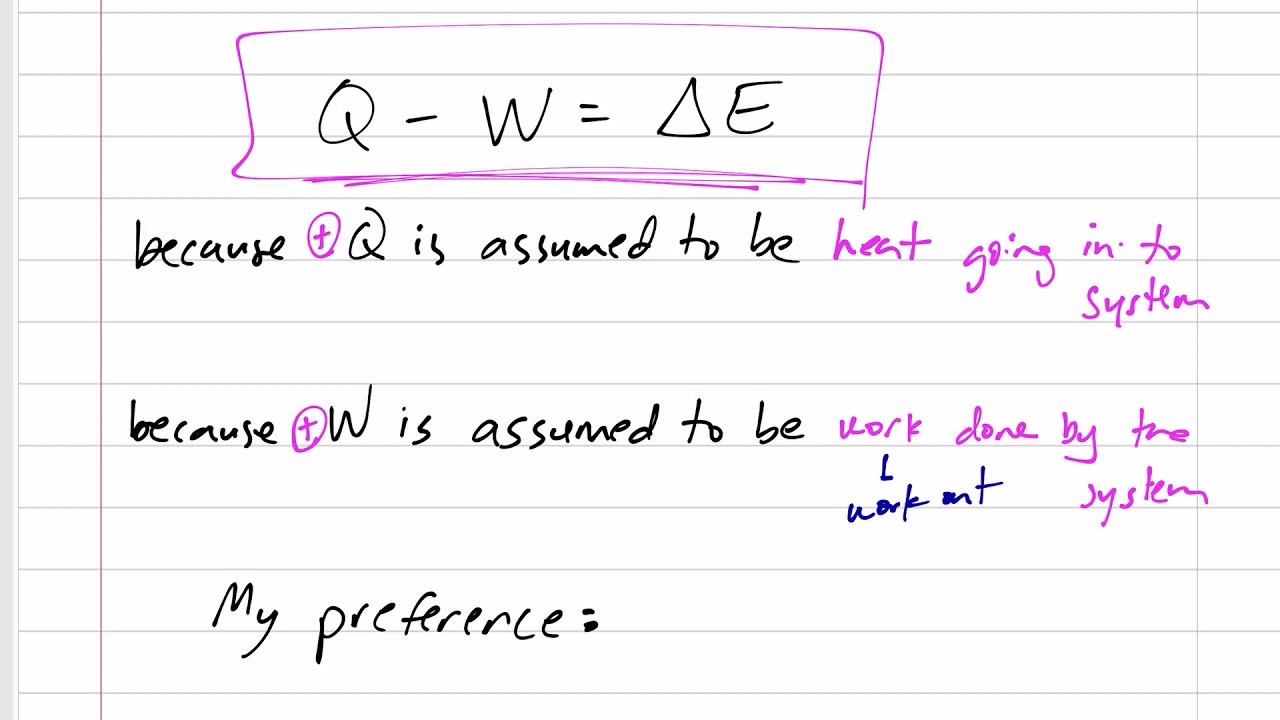 Q - W = ΔE
because ⊕Q is assumed to be heat going in to
system
because ⊕W is assumed to be work done by the
system
work out
My preference: